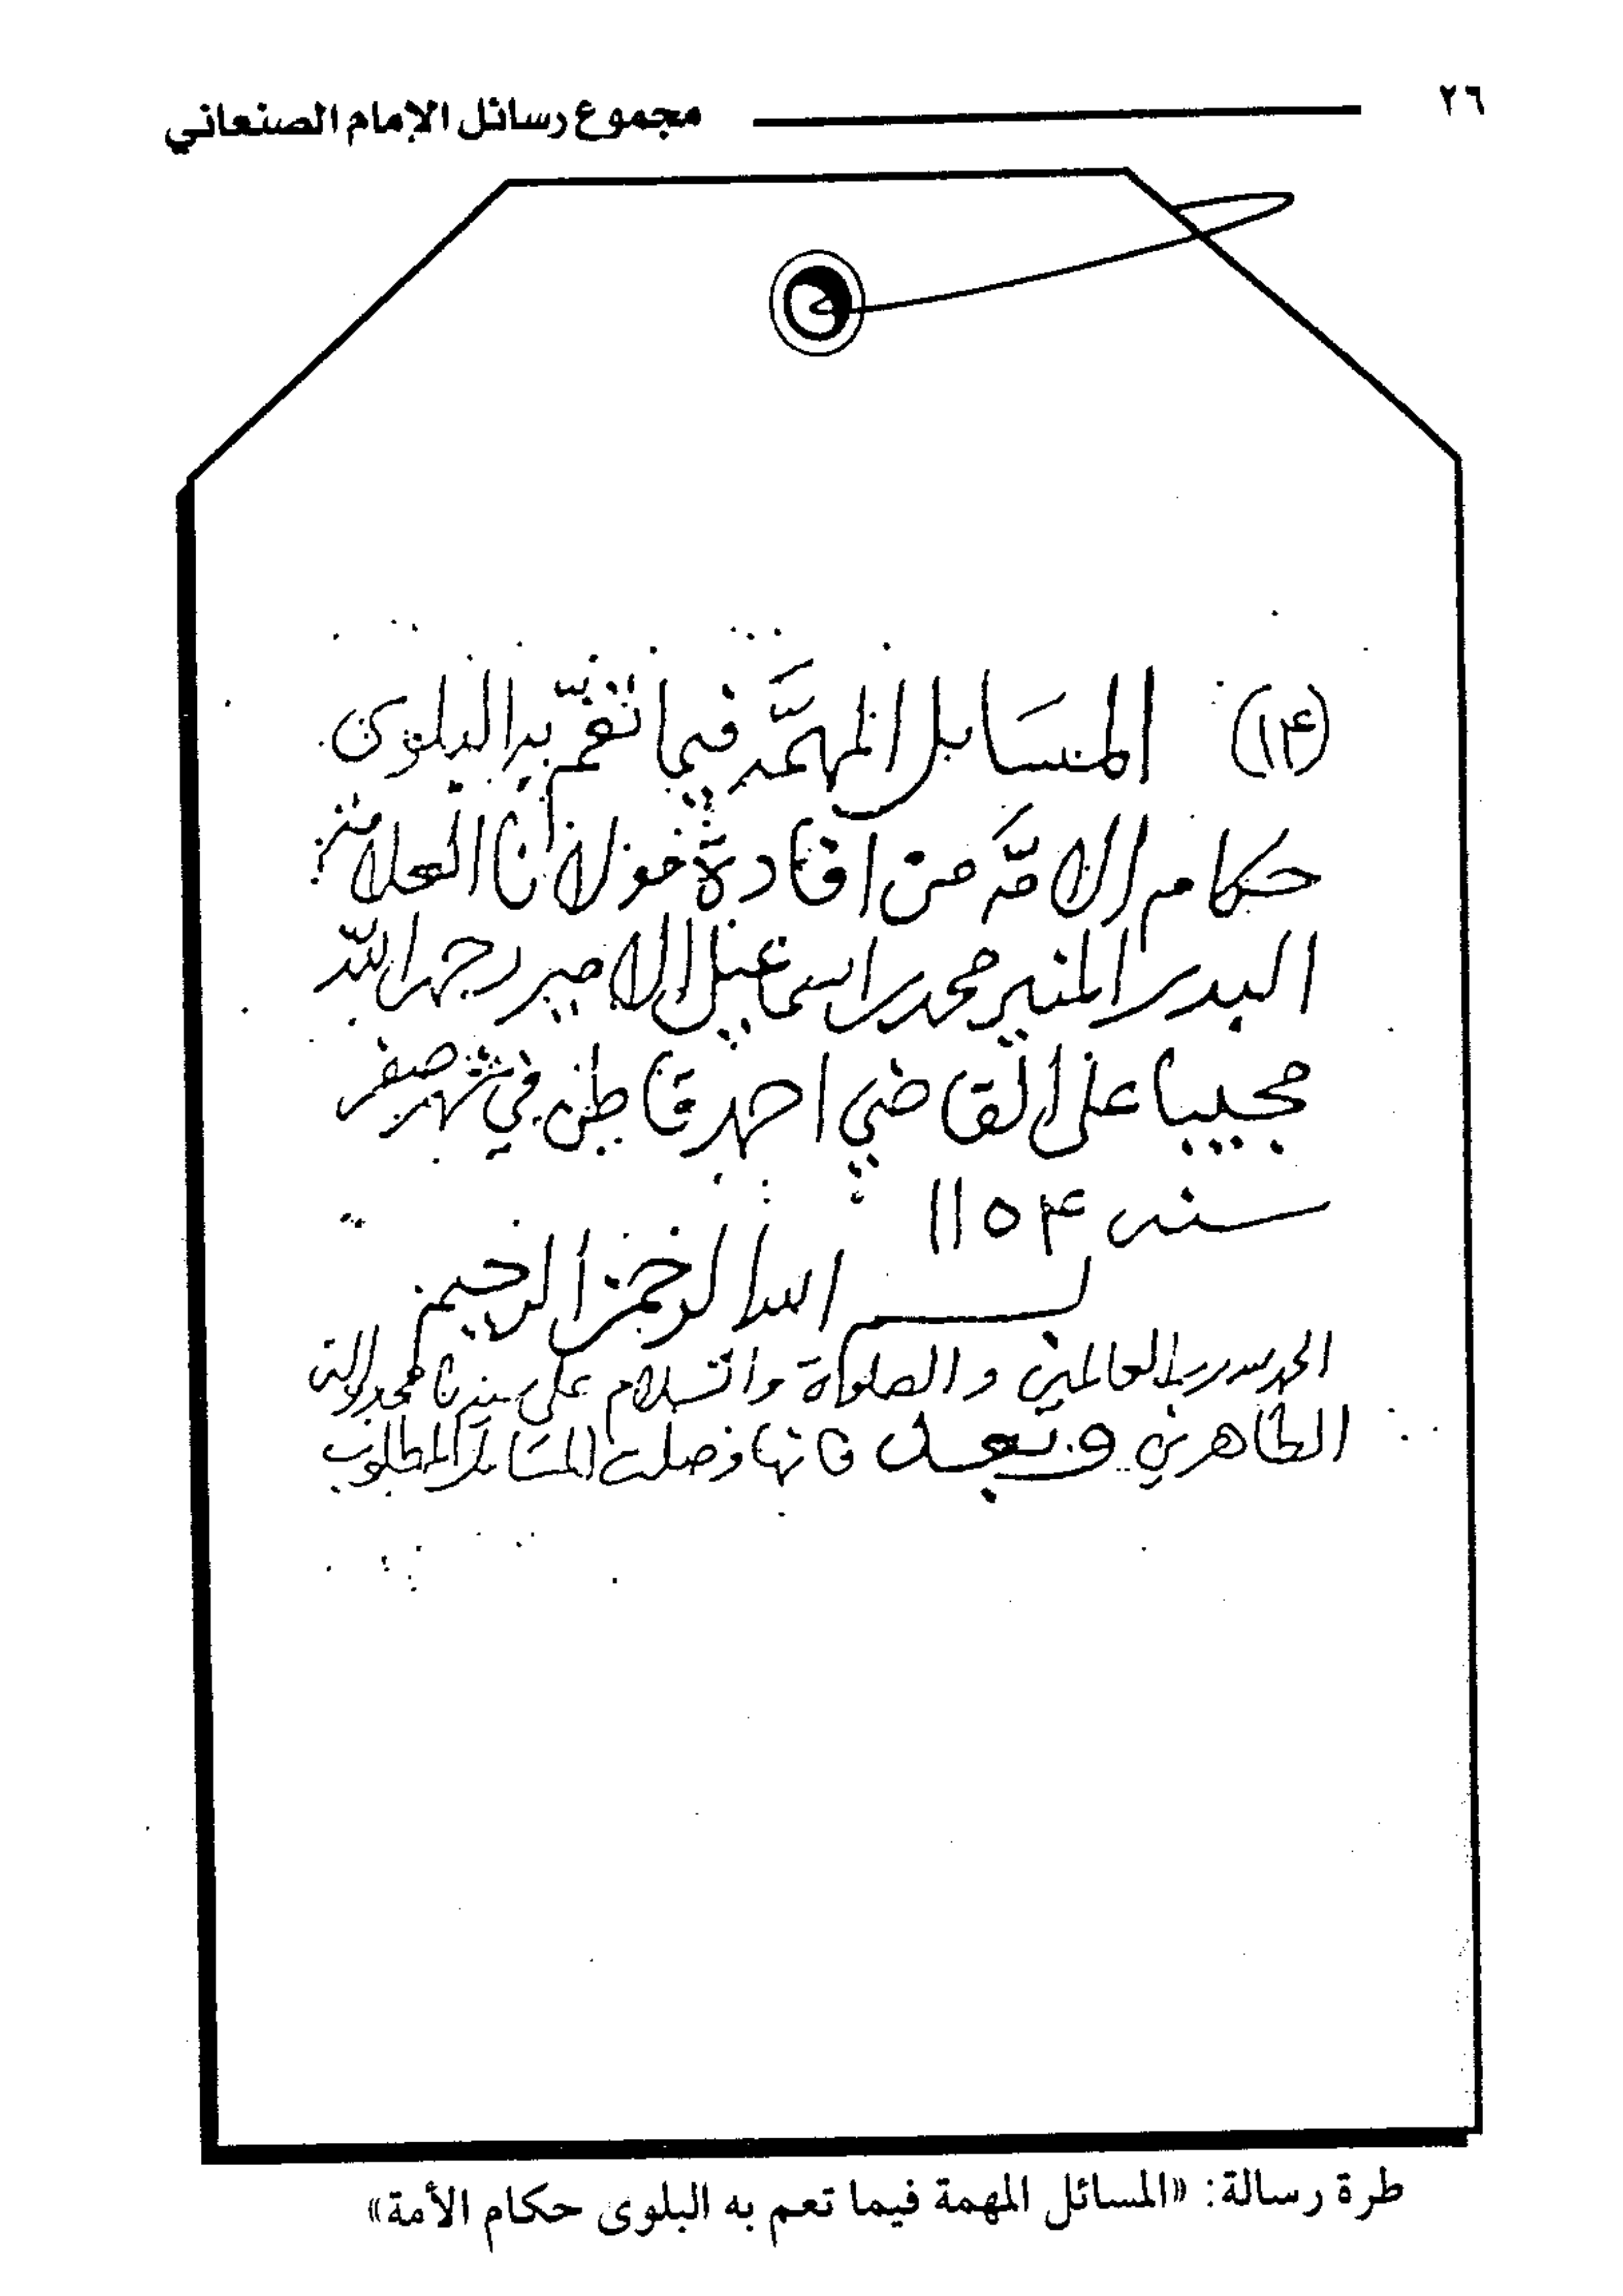 ٢٦
مجموع رسائل الإمام الصنعاني
(١۴) المسايل المهمَّه فيما تعُمّ به البلوى
حكام الامَّه من افادة مولانا العلامة
البدر المنير محمد بن اسماعيل الامير رحمه الله
مجيبا على القاضي احمد قاطن في شهر صفر
سنه ١١٥۴
بسم الله الرحمن الرحيم
الحمد لله رب العالمين والصلوة والسلام على سيدنا محمد واله
الطاهرين وبعد فانها وصلت المسايل المطلوب
طرة رسالة: «المسائل المهمة فيما تعم به البلوى حكام الأمة»